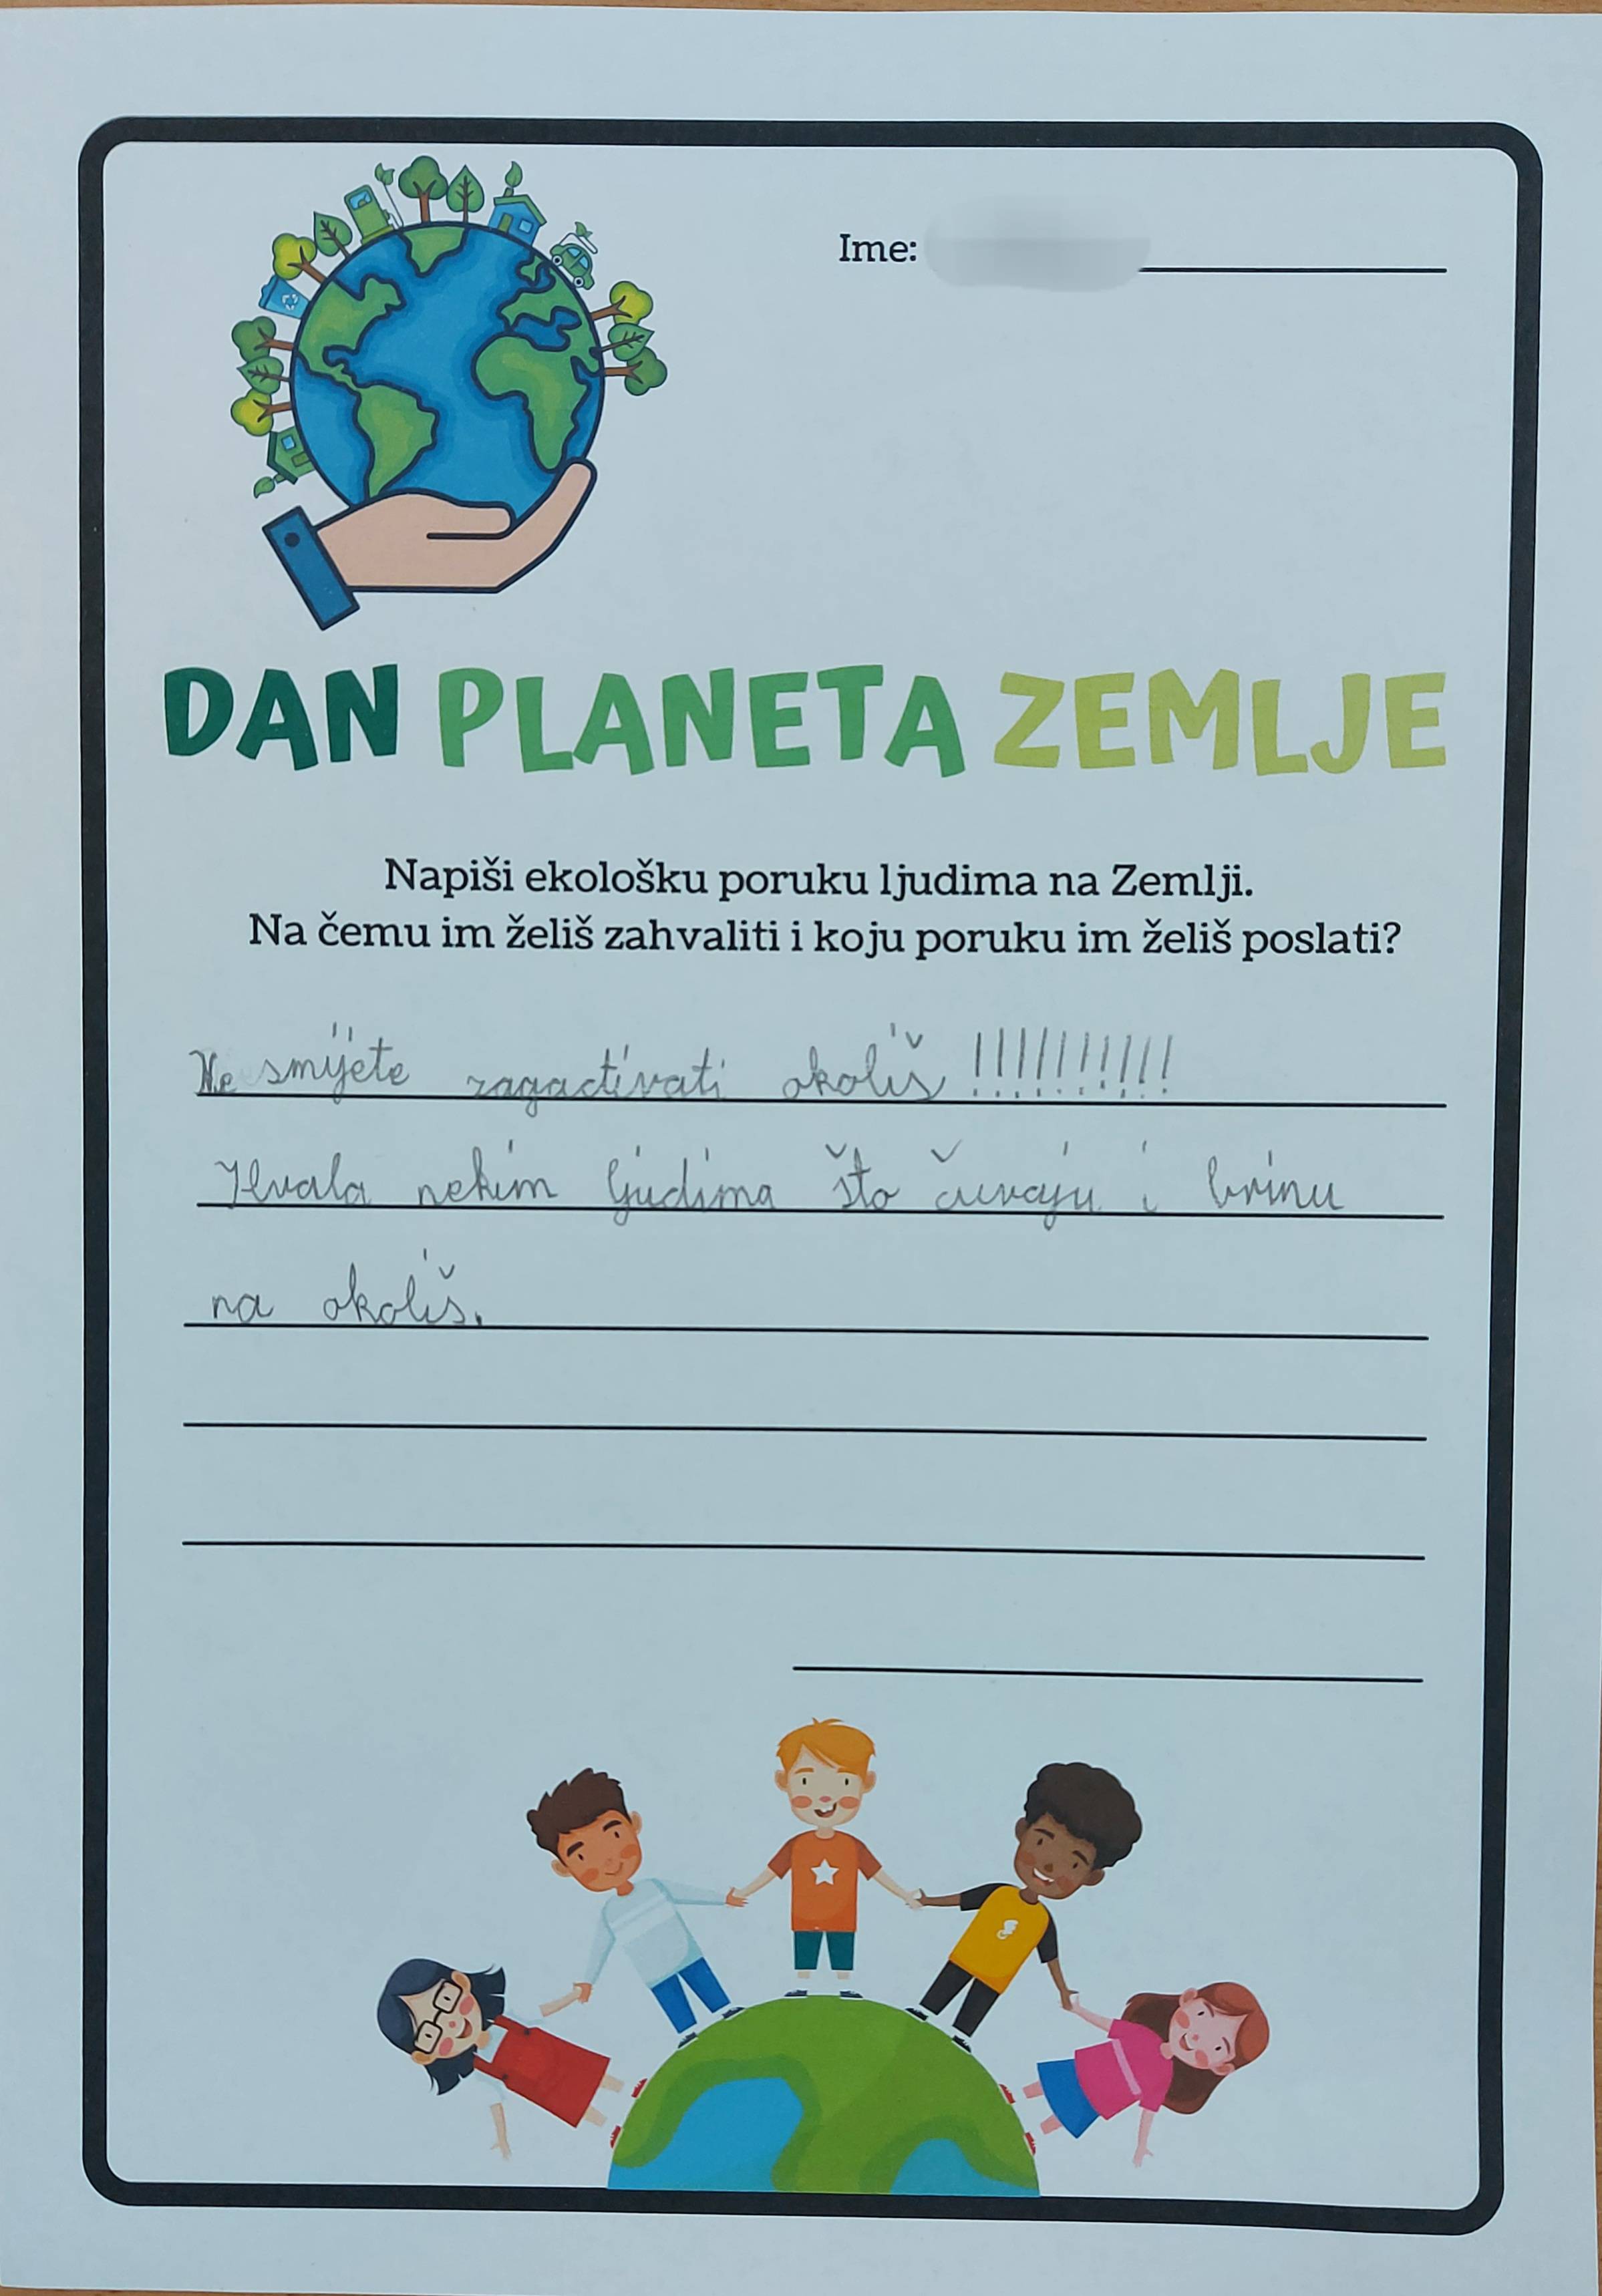 Ime:
DAN PLANETA ZEMLJE
Napiši ekološku poruku ljudima na Zemlji.
Na čemu im želiš zahvaliti i koju poruku im želiš poslati?
Ne smijete zagađivati okoliš !!!!!!!!!!
Hvala nekim ljudima što čuvaju i brinu
na okoliš.